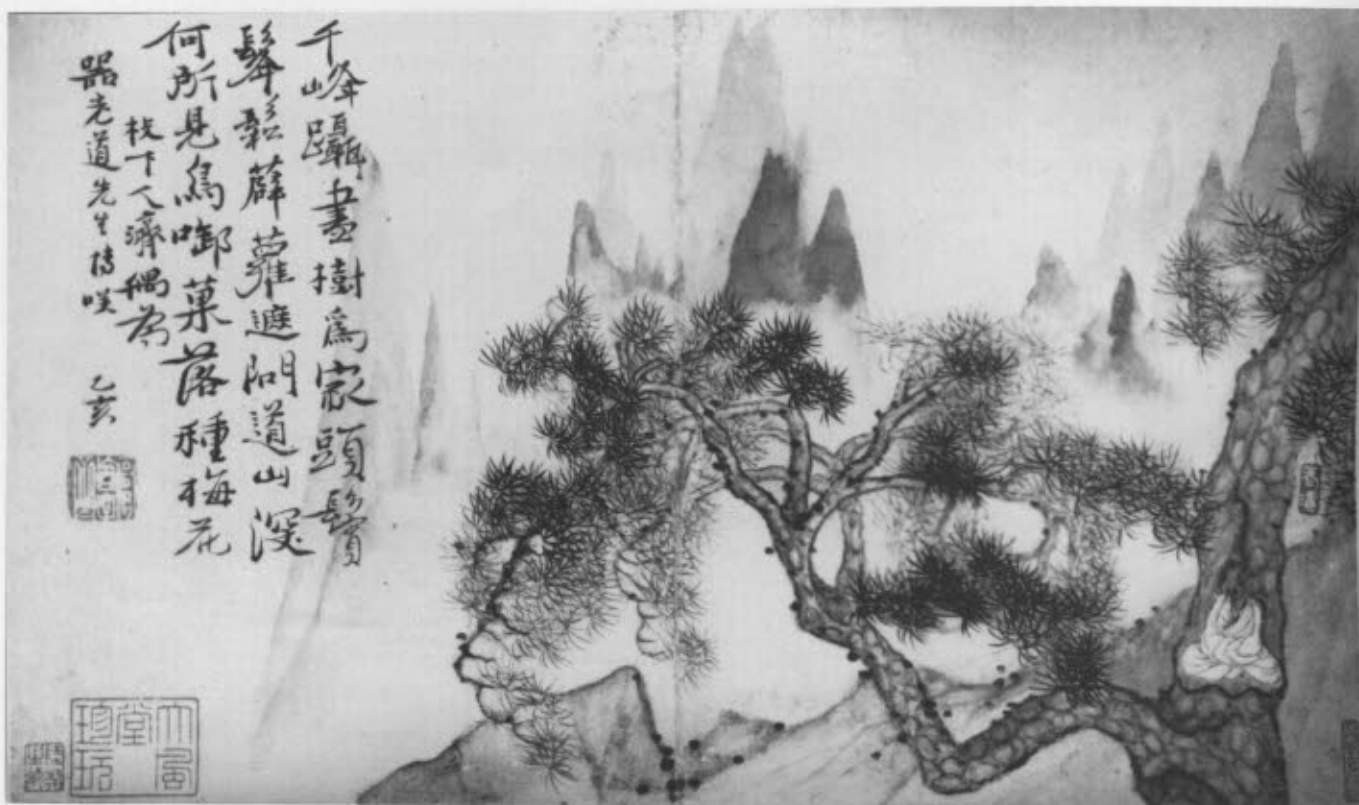 千峰躡盡樹爲家頭鬢
髼鬆薜蘿遮問道山深
何所見鳥啣菓落種梅花
枝下人濟偶爲
器老道先生博咲 乙亥
大風堂珍玩